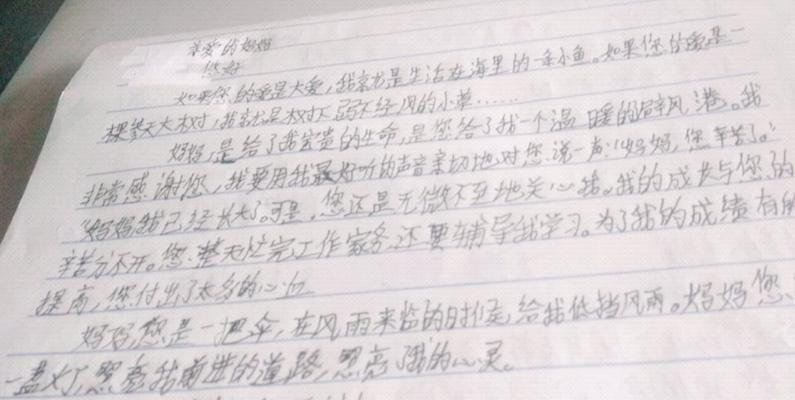 亲爱的妈妈
您好
如果您的爱是大爱,我就是生活在海里的一条小鱼。如果您的爱是一
棵参天大树,我就是树下弱不经风的小草……
妈妈,是给了我宝贵的生命,是您给了我一个温暖的避风港。我
非常感谢您,我要用我最好听的声音亲切地对您说一声:“妈妈,您辛苦了。”
“妈妈我已经长大了。可是,您还是无微不至地关心我。我的成长与您的
辛苦分不开。您整天忙完工作家务,还要辅导我学习。为了我的成绩有所
提高,您付出了太多的心血
妈妈,您是一把伞,在风雨来临的时候,给我低挡风雨。妈妈您
一盏灯,照亮我前进的道路,照亮了我的心灵。